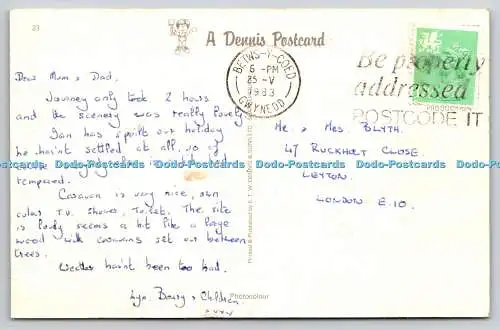 23
A Dennis Postcard
BETWS-Y-COED
6 - PM
25 - V
1983
GWYNEDD
Be properly
addressed
POSTCODE IT
Dear Mum & Dad,
Journey only took 2 hours
and the scenery was really lovely
Ian has spoilt our holiday
he hasn't settled at all, up of
tempered.
Caravan is very nice, own
colour T.V. Shower, Toilet. The site
is lovely seems a bit like a large
wood with caravans set out between
trees.
Weather hasn't been too bad.
Lyn. & Children
Mr. & Mrs BLYTH.
47 RUCKHOLT CLOSE.
LEYTON.
LONDON E.10.
Photocolour
Dodo-Postcards Dodo-Postcards Dodo-Postcards Dodo-Postcards Dodo-Postcards